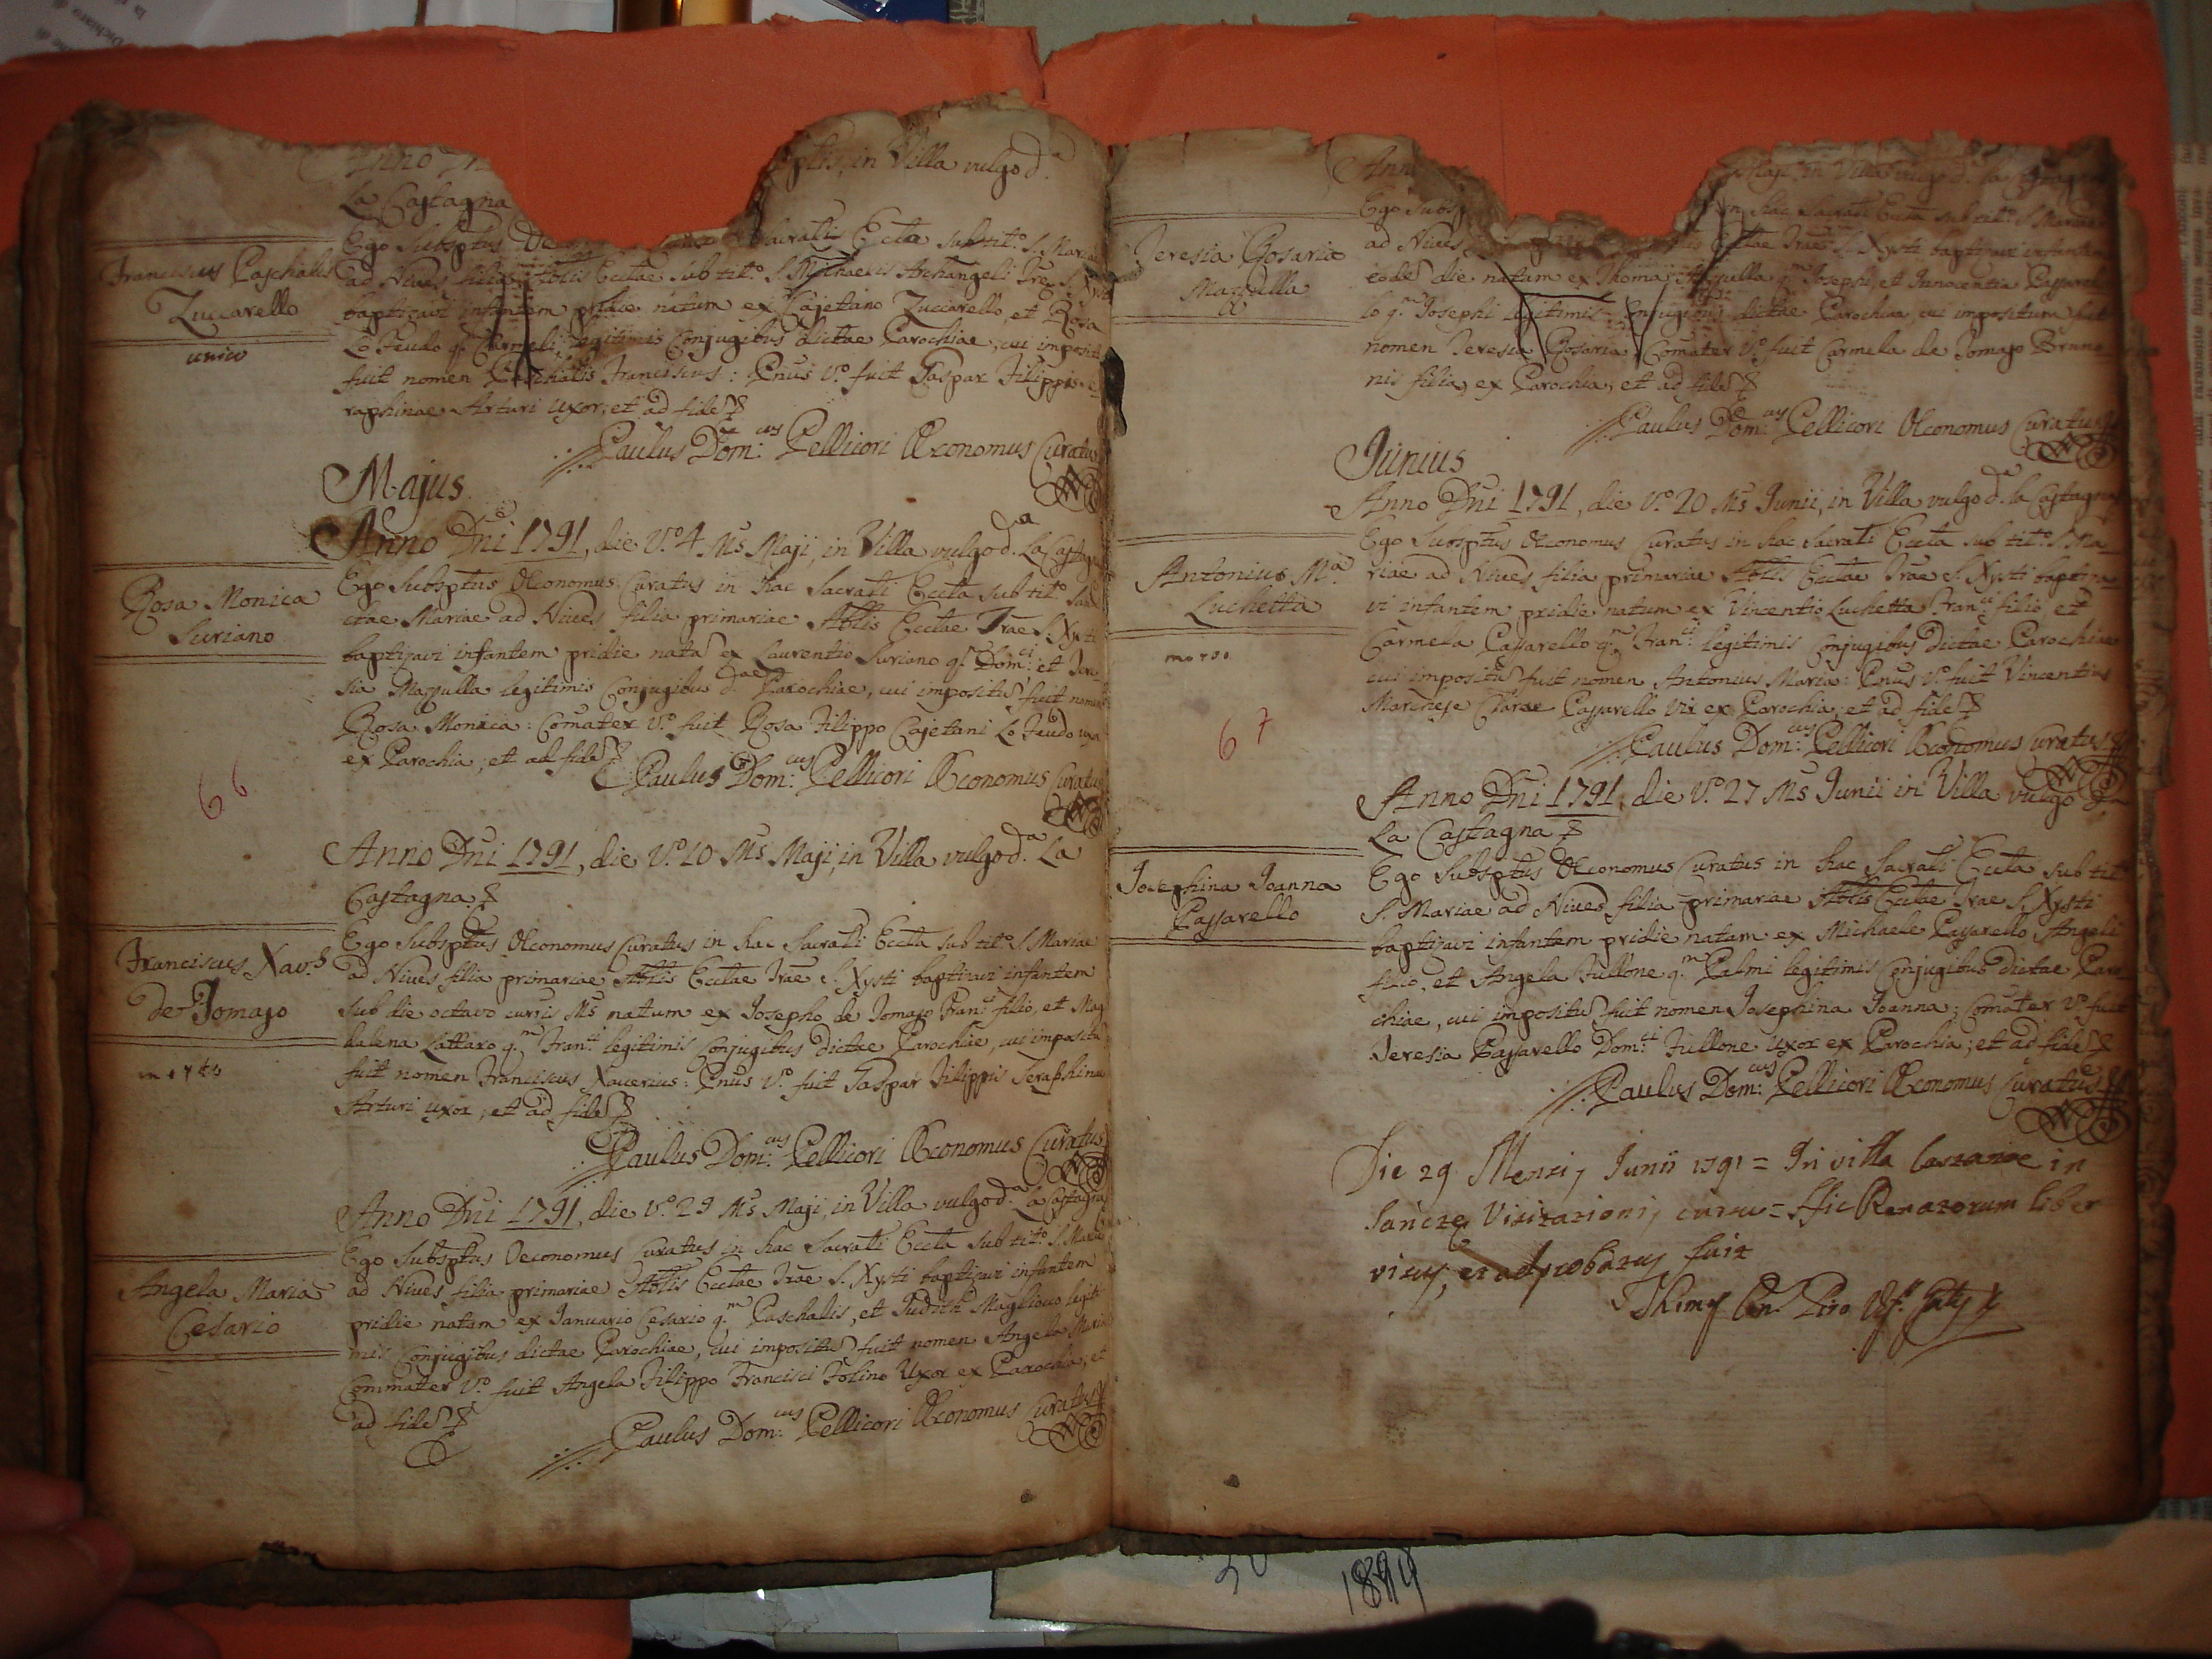 Anno
in Villa vulgo d.a
La Castagna
Franciscus Paschalis
Zuccarello
unico
Ego Subsptus Sacrati Eccta sub tit.o S. Mariae
ad Nives filia Ecctae sub tit.o S. Michaelis Archangeli
baptizavi infantem pridie natum ex Cajetano Zuccarello, et Rosa
Lo Feudo legitimis Conjugibus dictae Parochiae, cui imposit
fuit nomen Paschalis Franciscus: Pnus V.o fuit Gaspar Filippis
raphinae Arturi uxor; et ad fide
Paulus Dom:cus Pellicori Œconomus Curatus
Majus
Anno Dni 1791, die V.o 4 Ms Maji, in Villa vulgo d.a La Castagna
Rosa Monica
Suriano
Ego Subsptus Œconomus Curatus in hac Sacrati Eccta sub tit.o San
ctae Mariae ad Nives filia primariae Ablis Ecctae Trae S. Xysti
baptizavi infantem pridie nata ex Laurentio Suriano q. Dom:ci et Tere
sia Mazzulla legitimis Conjugibus d.ae Parochiae, cui impositu fuit nomen
Rosa Monica: Comater V.o fuit Rosa Filippo Cajetani Lo Feudo uxor
ex Parochia; et ad fide
Paulus Dom:cus Pellicori Œconomus Curatus
66
Anno Dni 1791, die V.o 10 Ms Maji, in Villa vulgo d.a La
Castagna
Franciscus Xav.s
de Tomaso
morto
Ego Subsptus Œconomus Curatus in hac Sacrati Eccta sub tit.o S. Mariae
ad Nives filia primariae Ablis Ecctae Trae S. Xysti baptizavi infantem
sub die octavo curris Ms natum ex Josepho de Tomaso Fran:ci filio, et Mag
dalena Lattaro q.m Fran:ci legitimis Conjugibus dictae Parochiae, cui impositu
fuit nomen Franciscus Xaverius: Pnus V.o fuit Gaspar Filippis Seraphina
Arturi uxor; et ad fide
Paulus Dom:cus Pellicori Œconomus Curatus
Anno Dni 1791, die V.o 29 Ms Maji, in Villa vulgo d.a La Castagna
Angela Maria
Cesario
Ego Subsptus Oeconomus Curatus in hac Sacrati Eccta sub tit.o S. Mariae
ad Nives filia primariae Ablis Ecctae Trae S. Xysti baptizavi infantem
pridie natam ex Januario Cesario q.m Paschalis, et Judith Magliocco legiti
mis Conjugibus dictae Parochiae, cui impositu fuit nomen Angela Maria
Commater V.o fuit Angela Filippo Francisci Folino Uxor ex Parochia; et
ad fide
Paulus Dom:cus Pellicori Œconomus Curatus
Anno
Maji in Villa vulgo d.a La Castagna
Teresia Rosaria
Mazzulla
Ego Subsp in hac Sacrati Eccta sub tit.o S. Mariae
ad Nives Ecctae Trae S. Xysti baptizavi infantem
eode die natam ex Thoma Mazzulla q.m Josephi, et Innocentia Passarel
lo q.m Josephi legitimis Conjugibus dictae Parochiae, cui impositum fuit
nomen Teresia Rosaria: Comater V.o fuit Carmela de Tomaso Bruno
nis filia, ex Parochia; et ad fide
Paulus Dom:cus Pellicori Œconomus Curatus
Junius
Anno Dni 1791, die V.o 20 Ms Junii, in Villa vulgo d.a la Castagna
Antonius M.a
Luchetta
morto
Ego Subsptus Œconomus Curatus in hac Sacrati Eccta sub tit.o S. Ma
riae ad Nives filia primariae Ablis Ecctae Trae S. Xysti baptiza
vi infantem pridie natum ex Vincentio Luchetta Fran:ci filio, et
Carmela Passarello q.m Fran:ci legitimis Conjugibus dictae Parochiae
cui impositu fuit nomen Antonius Maria: Pnus V.o fuit Vincentius
Marchese Clarae Passarello Vir ex Parochia; et ad fide
Paulus Dom:cus Pellicori Œconomus Curatus
67
Anno Dni 1791, die V.o 27 Ms Junii in Villa vulgo d.a
La Castagna
Josephina Joanna
Passarello
Ego Subsptus Œconomus Curatus in hac Sacrati Eccta sub tit.
S. Mariae ad Nives filia primariae Ablis Ecctae Trae S. Xysti
baptizavi infantem pridie natam ex Michaele Passarello Angeli
filio, et Angela Fullone q.m Palmi legitimis Conjugibus dictae Paro
chiae, cui impositu fuit nomen Josephina Joanna; Comater V.o fuit
Teresia Passarello Dom:ci Fullone Uxor ex Parochia; et ad fide
Paulus Dom:cus Pellicori Œconomus Curatus
Die 29 Mensis Junii 1791 = In villa Castaneae in
Sanctae Visitationis cursu = Hic Renatorum liber
visus, et adprobatus fuit
1899